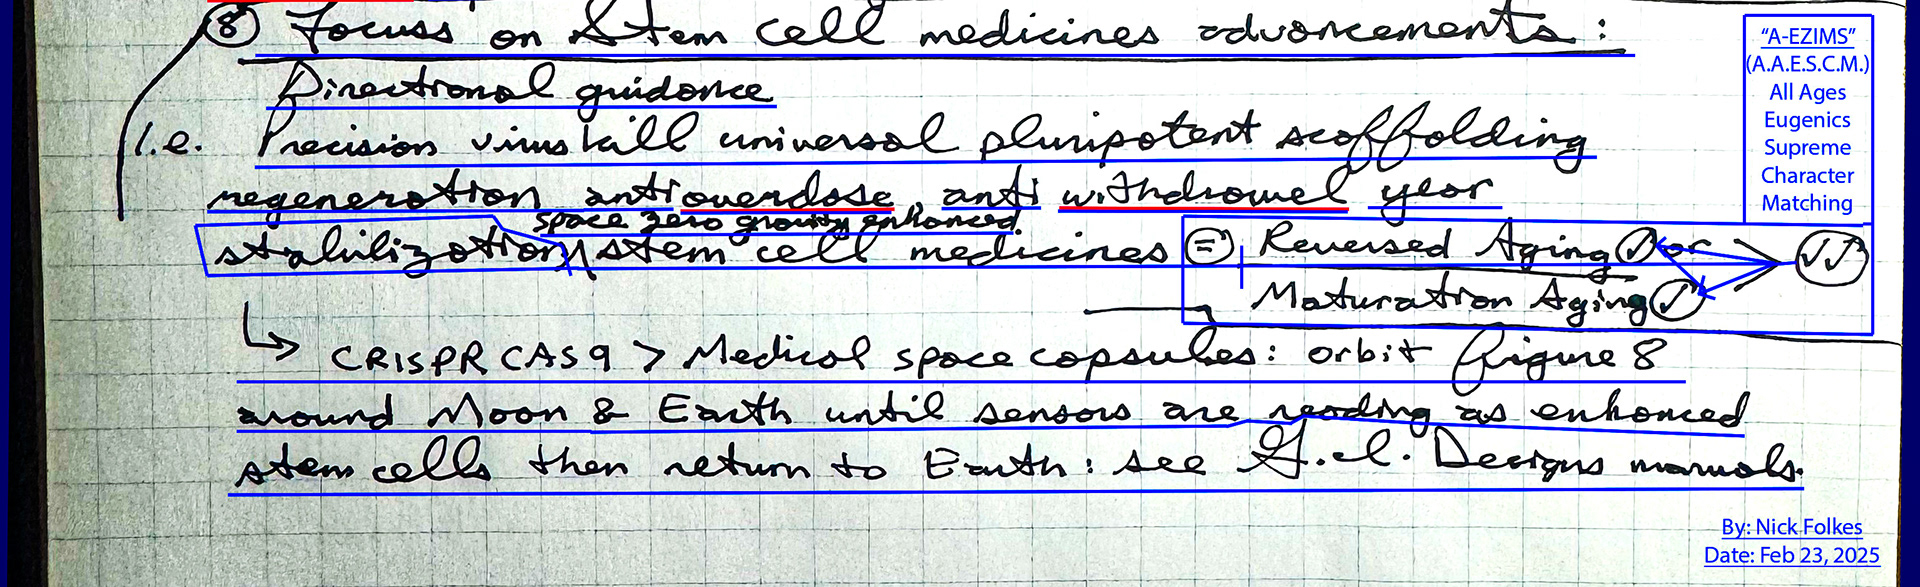 8 Focuss on Stem cell medicines advancements :
Directional guidance
i.e. Precision virus kill universal pluripotent scaffolding
regeneration antioverdose, anti withdrawel year
space zero gravity enhanced
stabilization stem cell medicines = Reversed Aging ✓ or ✓✓
Maturation Aging ✓
↳ CRISPR CAS9 > Medical space capsules: orbit figure 8
around Moon & Earth until sensors are reading as enhanced
stem cells then return to Earth: see G.I. Designs manuals.
"A-EZIMS"
(A.A.E.S.C.M.)
All Ages
Eugenics
Supreme
Character
Matching
By: Nick Folkes
Date: Feb 23, 2025